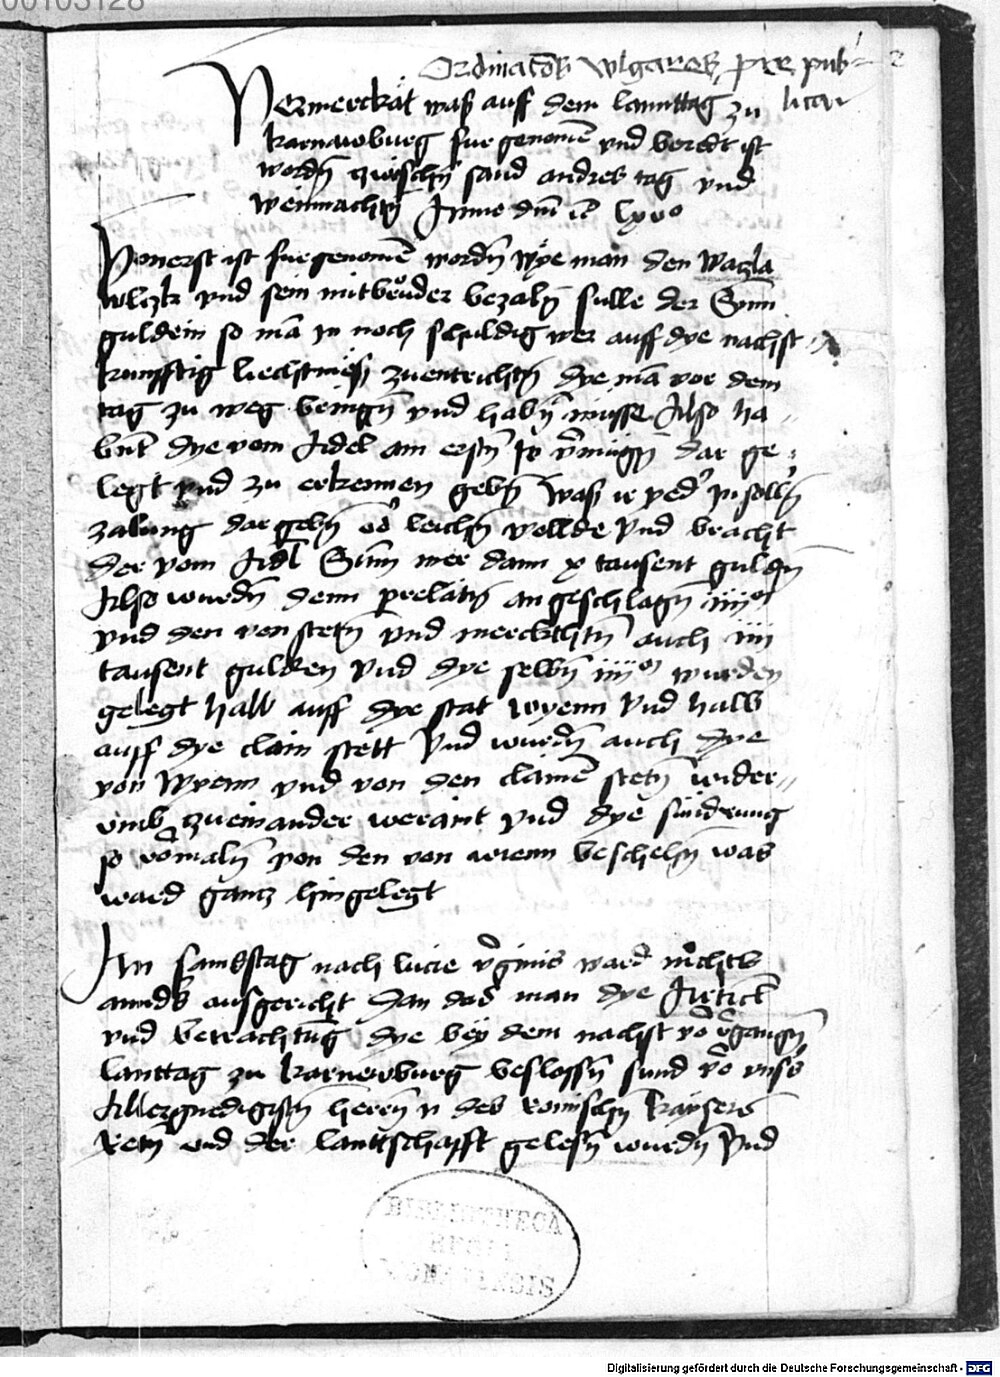 00103128
Ordinatōes wlgares p̱ pub=
licar
2
Vermerckāt waß auff dem lannttag zu
karnawburg fur genomē vnd beredt ist
wordn̄ zwischn̄ sand andres tag vnd
Weinnachtn̄ Anno dm̄ ꝛc̄ lxvo
Vonerst ist furgenomē wordn̄ wye man den Wazla
wltzk vnd sein mitbrüder bezaln̄ sulle der Sum̄
guldein so mā in noch schuldig wer auff dye nachst
kunfftig liechtmeß zuentrichtn̄ dye mā vor dem
tag zu weg bringn̄ vnd habn̄ müsse Also ha„
bnt dye vom Adel am erstn̄ ir v̄mügn̄ dar ge„
legt vnd zu erkennen gebn̄ waß ir yed'
zalung dar gebn̄ od' leichn̄ wellde vnd bracht
der vom Adl Sum̄ mer dann x tausent guldn̄
Also wurdn̄ denn prelatn̄ angeschlagn̄ iiijM
vnd den von stetn̄ vnd merckthtn̄ auch iiij
tausent gulden vnd dye selbn̄ iiijM wurden
gelegt halb auff dye stat wyenn vnd halb
auff dye clain stett vnd wurdn̄ auch dye
von Wyenn vnd von den clainē stetn̄ wider„
umb zueinander weraint vnd dye sündrung
so vōrmaln̄ von den von wienn beschehn̄ was
ward gantz hingelegt
Am sambstag nach lucie v̄ginis ward nichts
annd's ausgericht dan das man dye Artickl
vnd betrachtūg dye bey dem nachst vōrgangn̄
lanttag zu karnewburg beslossn̄ sind vō vns's
Allergnedigistn̄ herrn̄ n des romischn̄ kaysers
retn̄ vnd der lanttschafft gelesn̄ wurdn̄ vnd
Digitalisierung gefördert durch die Deutsche Forschungsgemeinschaft - DFG